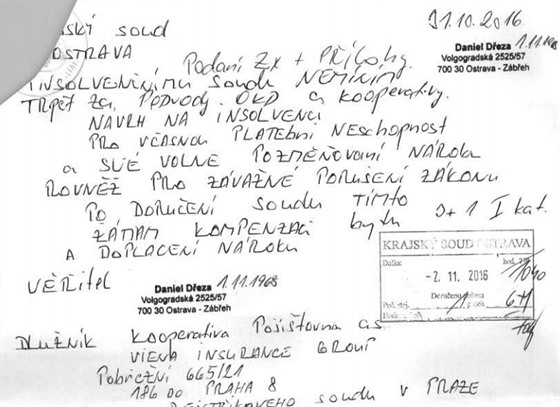 ský soud
OSTRAVA
31.10.2016
Daniel Dřeza 1.11.1968
Volgogradská 2525/57
700 30 Ostrava - Zábřeh
Podání 2x + PŘÍlohy.
INSOLVENČNÍMU SOUDU NEMÍNÍM
TRPĚT ZA PODVODY. OKD a Kooperativy.
NÁVRH NA INSOLVENCI
PRO VČASNOU PLATEBNÍ NESCHOPNOST
a SVÉ VOLNÉ POZMĚŇOVÁNÍ NÁROKU
ROVNĚŽ PRO ZÁVAŽNÉ PORUŠENÍ ZÁKONU
PO DORUČENÍ SOUDU TÍMTO
ŽÁDÁM KOMPENZACI bytu 3+1 I kat.
A DOPLACENÍ NÁROKU
KRAJSKÝ SOUD OSTRAVA
Došlo:
-2. 11. 2016
VĚŘITEL
Daniel Dřeza 1.11.1968
Volgogradská 2525/57
700 30 Ostrava - Zábřeh
DLUŽNÍK Kooperativa Pojišťovna a.s.
VIENA INSURANCE GROUP
Pobřežní 665/21
186 00 PRAHA 8
REJSTŘÍKOVÉHO soudu v PRAZE